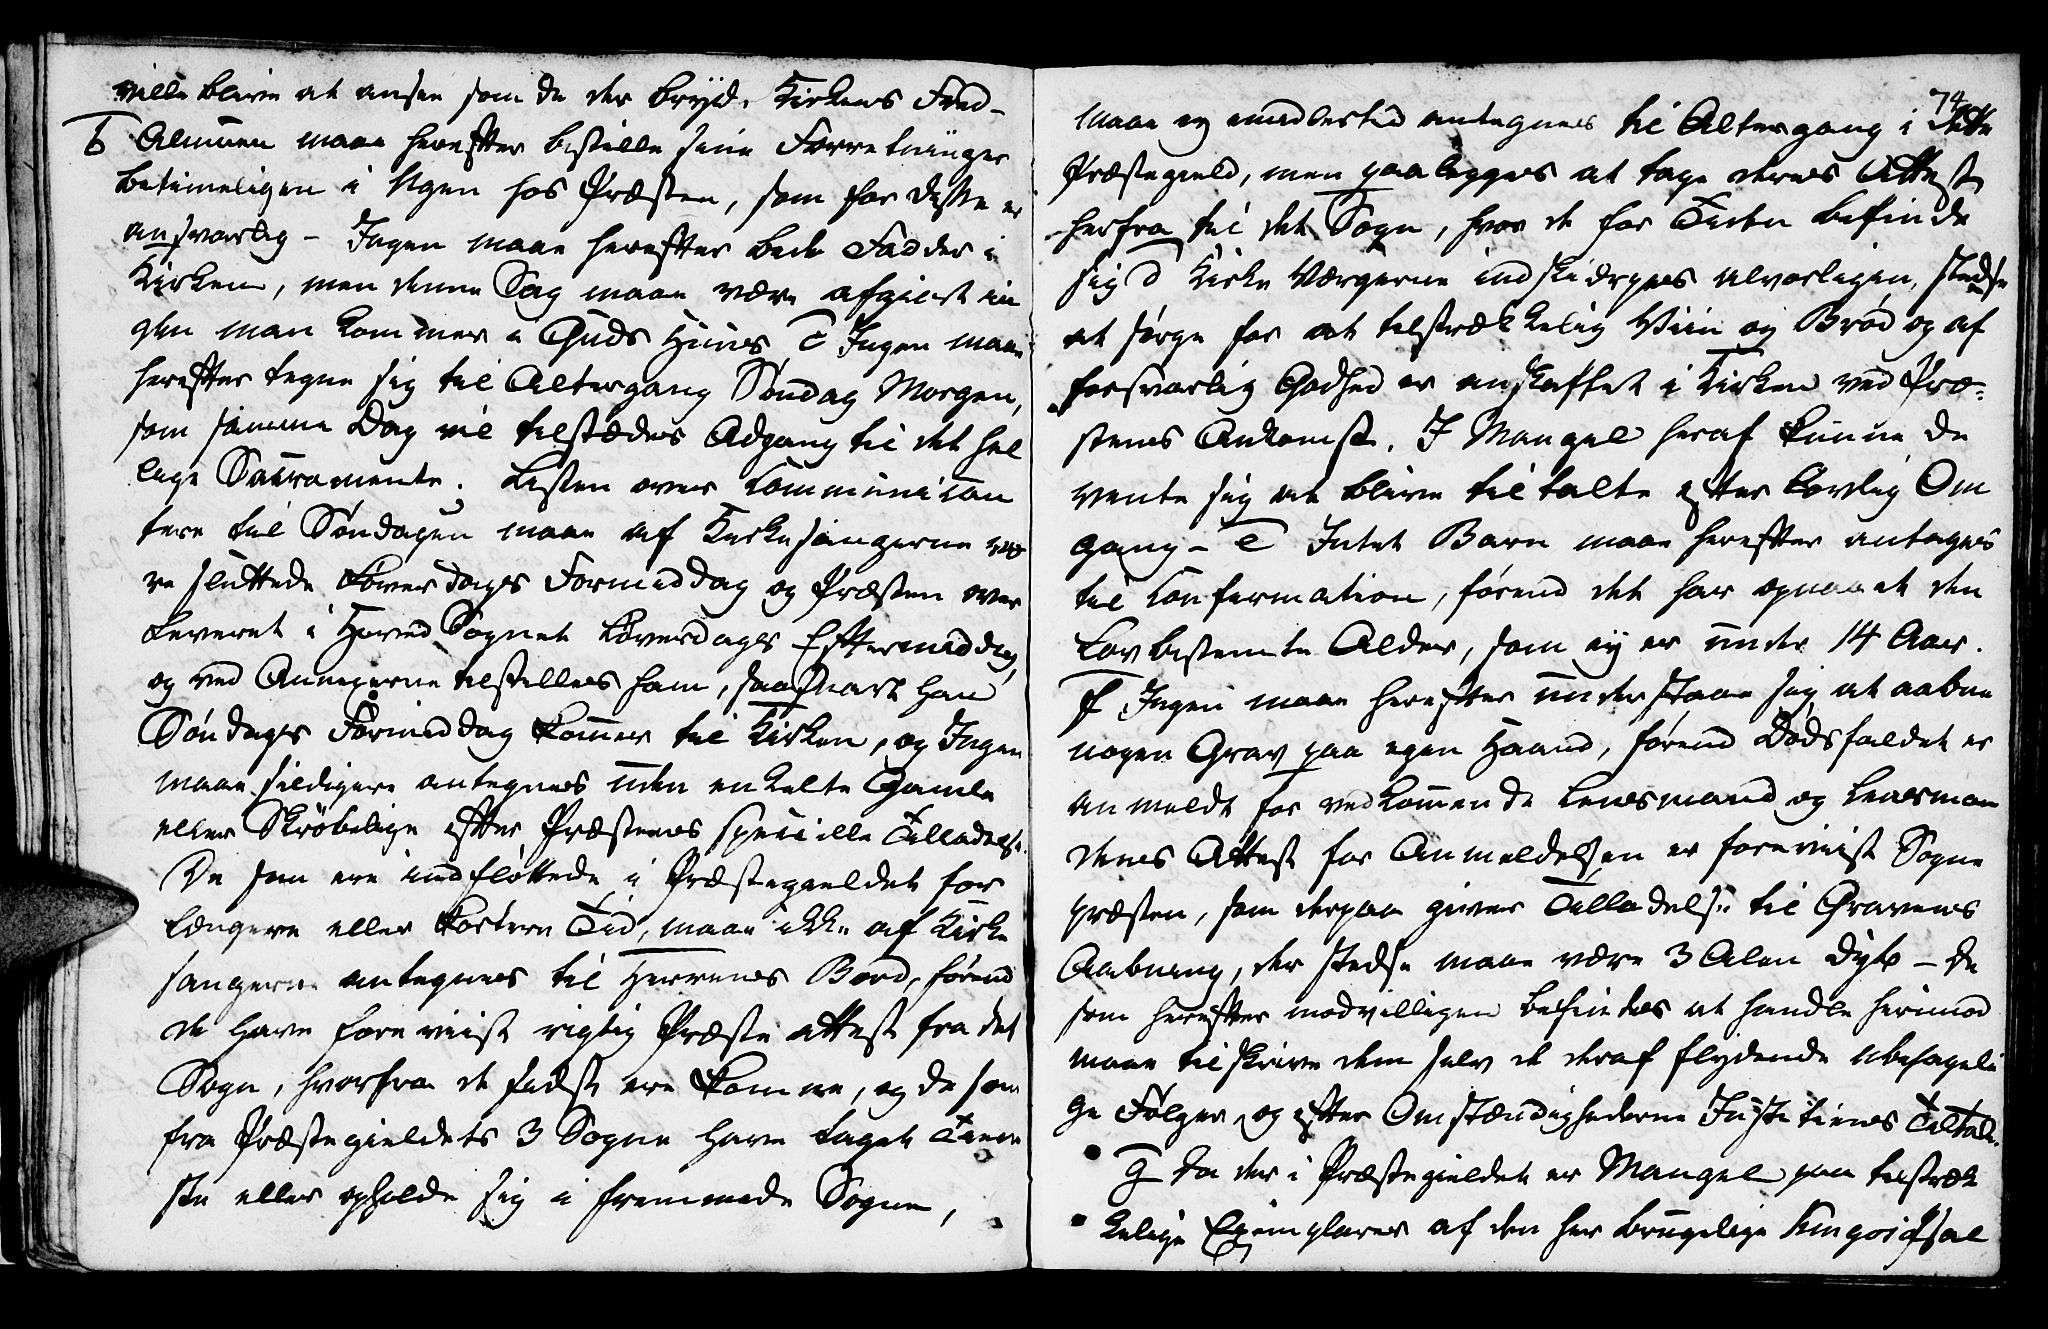 ville blive at ansee som de der bryde Kirkens Fred-
b Almuen maae herefter bestille sine Forretninger
betimeligen i Ugen hos Præsten, som for dette er
ansvarlig - Ingen maae herefter bede Faddere i
Kirken, men denne Sag maae være afgiort in
den man kommer i Guds Huus, c Ingen maae
herefter tegne sig til Altergang Søndag Morgen,
som samme Dag vil tilstædes Adgang til det hel
lige Sacramente. Listen over Communican
tere til Søndagen maae af Kirkesangerne væ
re sluttede Løverdags Formiddag og Præsten over
leveret i Hoved Sognet Løverdags Eftermiddag,
og ved Annexerne tilstilles ham, saasnart han
Søndags Formiddag kommer til Kirken, og Ingen
maae sildigere antegnes uden enkelte Gamle
eller Skrøbelige efter Præstens specielle Tilladelse.
De som ere indfløttede i Præstegieldet for
længere eller kortere Tid, maae ikke af Kirke
sangerne antegnes til Herrens Bord, førend
de have foreviist rigtig Præste attest fra det
Sogn, hvorfra de sidst ere komne, og de som
fra Præstegieldets 3 Sogne have taget Tiene
ste eller opholde sig i fremmede Sogne,
74
maae ey imidlertid antegnes til Altergang i dette
Præstegield, men paalegges at tage deres Attest
herfra til det Sogn, hvor de for Tiden befinde
sig d Kirke Værgerne indskiærpes alvorligen, stedse
at sørge for at tilstrækkelig Viin og Brød og af
forsvarlig Godhed er anskaffet i Kirken ved Præ-
stens Ankomst. I Mangel heraf kunne de
vente sig at blive tiltalte efter lovlig Om
gang - e Intet Barn maae herefter antages
til Confirmation, førend det har opnaaet den
Lovbestemte Alder, som ey er under 14 Aar.
f Ingen maae herefter understaae sig at aabne
nogen Grav paa egen Haand, førend Dødsfaldet er
anmeldt for vedkommende Lensmand og Lensman
dens Attest for Anmeldelsen er foreviist Sogne
præsten, som derpaa giver Tilladelse til Gravens
Aabning, der stedse maae være 3 Alen dyb - De
som herefter modvilligen befindes at handle herimod
maae tilskrive dem selv de deraf flydende ubehageli
ge Følger, og efter Omstændighederne Justitiens Tiltale.
g Da der i Præstegieldet er Mangel paa tilstræk
kelige Exemplarer af den her brugelige Kingos Psal